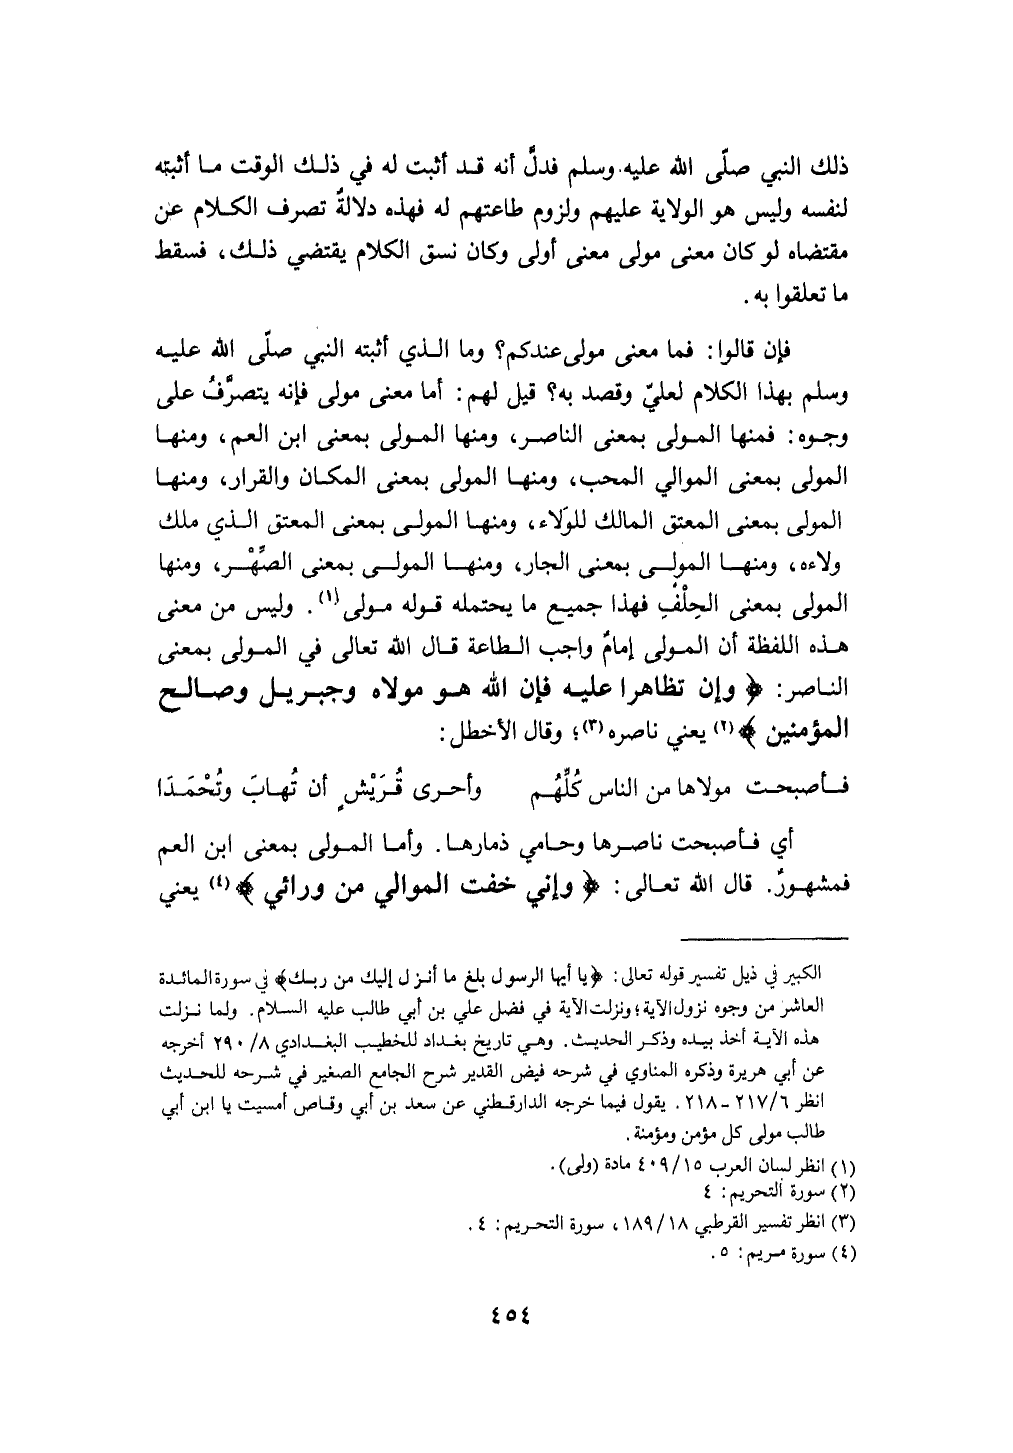 ذلك النبي صلّى الله عليه وسلم فدلَّ أنه قد أثبت له في ذلك الوقت ما أثبته
لنفسه وليس هو الولاية عليهم ولزوم طاعتهم له فهذه دلالةٌ تصرف الكلام عن
مقتضاه لو كان معنى مولى معنى أولى وكان نسق الكلام يقتضي ذلك، فسقط
ما تعلقوا به.
فإن قالوا: فما معنى مولى عندكم؟ وما الذي أثبته النبي صلّى الله عليه
وسلم بهذا الكلام لعليّ وقصد به؟ قيل لهم: أما معنى مولى فإنه يتصرَّفُ على
وجوه: فمنها المولى بمعنى الناصر، ومنها المولى بمعنى ابن العم، ومنها
المولى بمعنى الموالي المحب، ومنها المولى بمعنى المكان والقرار، ومنها
المولى بمعنى المعتق المالك للوَلاء، ومنها المولى بمعنى المعتق الذي ملك
ولاءه، ومنها المولى بمعنى الجار، ومنها المولى بمعنى الصِّهْر، ومنها
المولى بمعنى الحِلْفِ فهذا جميع ما يحتمله قوله مولى(١). وليس من معنى
هذه اللفظة أن المولى إمامٌ واجب الطاعة قال الله تعالى في المولى بمعنى
الناصر: ﴿وإن تظاهرا عليه فإن الله هو مولاه وجبريل وصالح
المؤمنين﴾(٢) يعني ناصره(٣)؛ وقال الأخطل:
فأصبحت مولاها من الناس كُلِّهُم وأحرى قُرَيْشٍ أن تُهابَ وتُحْمَدَا
أي فأصبحت ناصرها وحامي ذمارها. وأما المولى بمعنى ابن العم
فمشهورٌ. قال الله تعالى: ﴿وإني خفت الموالي من ورائي﴾(٤) يعني
الكبير في ذيل تفسير قوله تعالى: ﴿يا أيها الرسول بلغ ما أنزل إليك من ربك﴾ في سورة المائدة
العاشر من وجوه نزول الآية؛ ونزلت الآية في فضل علي بن أبي طالب عليه السلام. ولما نزلت
هذه الآية أخذ بيده وذكر الحديث. وهي تاريخ بغداد للخطيب البغدادي ٨/ ٢٩٠ أخرجه
عن أبي هريرة وذكره المناوي في شرحه فيض القدير شرح الجامع الصغير في شرحه للحديث
انظر ٦/ ٢١٧ - ٢١٨. يقول فيما خرجه الدارقطني عن سعد بن أبي وقاص أمسيت يا ابن أبي
طالب مولى كل مؤمن ومؤمنة.
(١) انظر لسان العرب ١٥/ ٤٠٩ مادة (ولى).
(٢) سورة التحريم: ٤
(٣) انظر تفسير القرطبي ١٨/ ١٨٩، سورة التحريم: ٤.
(٤) سورة مريم: ٥.
٤٥٤